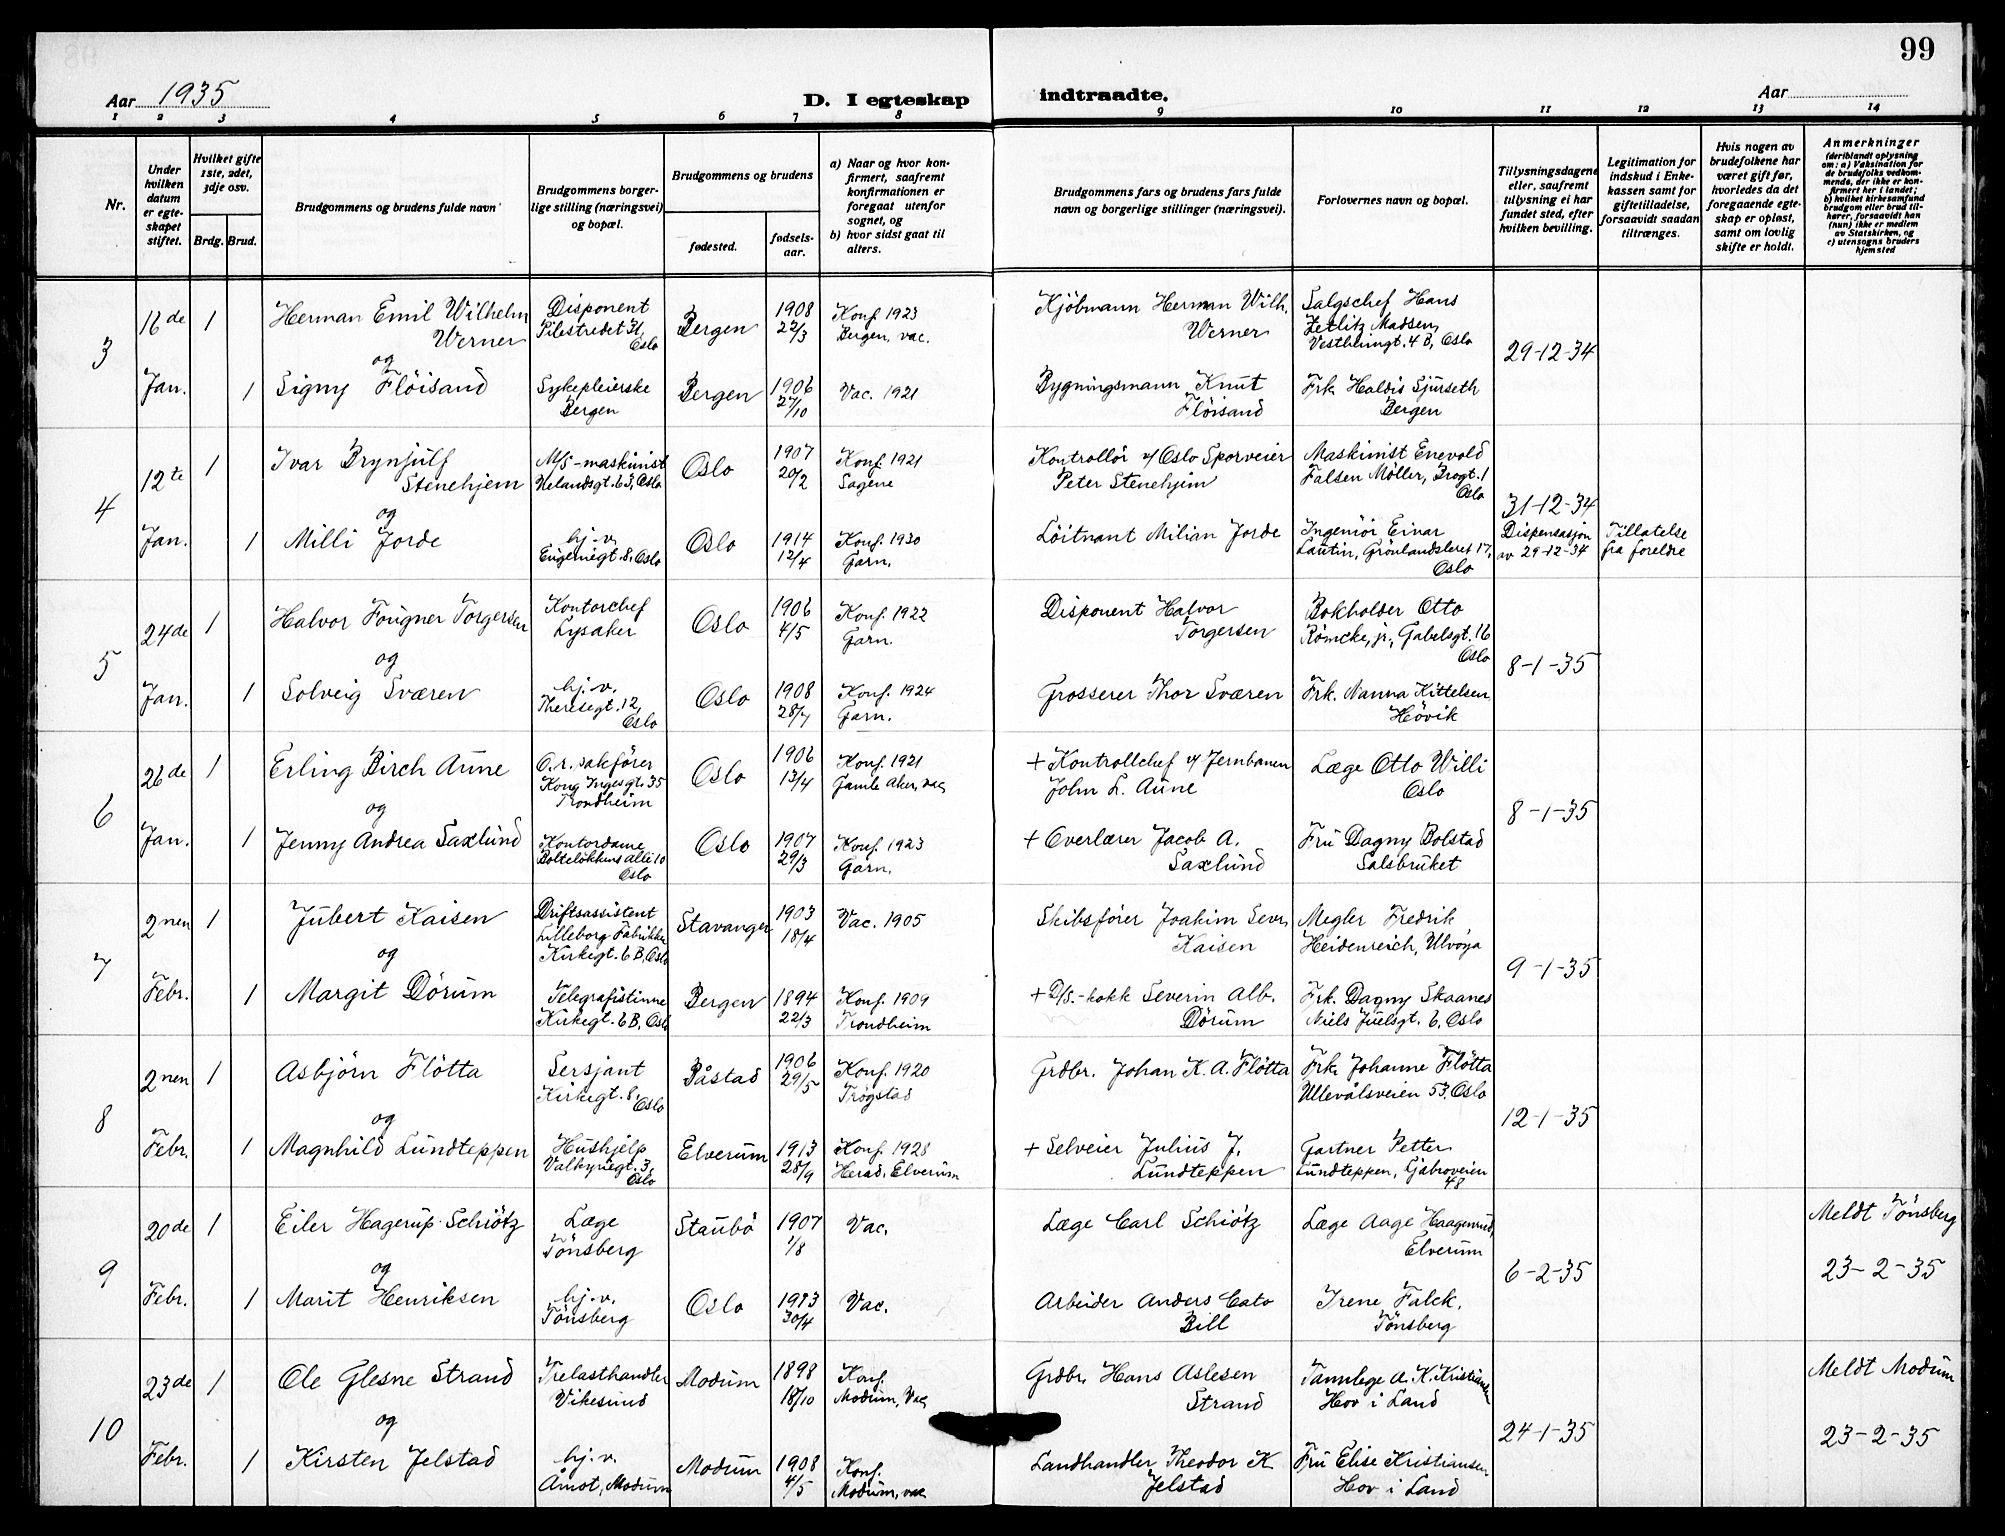 99
Aar 1935
D. I egteskap
indtraadte.
Aar
1 2 3 4 5 6 7 8 9 10 11 12 13 14
Nr.
Under hvilken datum er egteskapet stiftet.
Hvilket gifte 1ste, 2det, 3dje osv.
Brdg. Brud.
Brudgommens og brudens fulde navn
Brudgommens borgerlige stilling (næringsvei) og bopæl.
Brudgommens og brudens
fødested.
fødselsaar.
a) Naar og hvor konfirmert, saafremt konfirmationen er foregaat utenfor sognet, og
b) hvor sidst gaat til alters.
Brudgommens fars og brudens fars fulde navn og borgerlige stillinger (næringsvei).
Forlovernes navn og bopæl.
Tillysningsdagene eller, saafremt tillysning ei har fundet sted, efter hvilken bevilling.
Legitimation for indskud i Enkekassen samt for giftetilladelse, forsaavidt saadan tiltrænges.
Hvis nogen av brudefolkene har været gift før, hvorledes da det foregaaende egteskap er opløst, samt om lovlig skifte er holdt.
Anmerkninger
(deriblandt oplysning om: a) Vaksination for de brudefolks vedkommende, der ikke er konfirmert her i landet;
b) hvilket kirkesamfund brudgom eller brud tilhører, forsaavidt han (hun) ikke er medlem av Statskirken, og
c) utensogns bruders hjemsted
3
16de Jan.
1
Herman Emil Wilhelm Werner
Disponent Pilestredet 31, Oslo
Bergen
1908 22/3
Konf. 1923 Bergen, vac.
Kjöbmann Herman Wilh. Werner
Salgschef Hans Zetlitz Madsen, Vestheimgt. 4 B, Oslo
29-12-34
og
1
Signy Flöisand
Sykepleierske Bergen
Bergen
1906 27/10
Vac. 1921
Bygningsmann Knut Flöisand
Frk. Haldis Sjurseth Bergen
4
12te Jan.
1
Ivar Brynjulf Stenehjem
M/S-maskinist Uelandsgt. 63, Oslo
Oslo
1907 20/2
Konf. 1921 Sagene
Kontrollör v/ Oslo Sporveier Peter Stenehjem
Maskinist Enevold Falsen Möller, Brogt. 1 Oslo
31-12-34
Dispensasjon av 29-12-34
Tillatelse fra foreldre
og
1
Milli Jorde
hj.v. Eugeniegt. 8, Oslo
Oslo
1914 12/4
Konf. 1930 Garn.
Löitnant Milian Jorde
Ingeniör Einar Lautin, Grönlandsleret 17, Oslo
5
24de Jan.
1
Halvor Fougner Torgersen
Kontorchef Lysaker
Oslo
1906 4/5
Konf. 1922 Garn.
Disponent Halvor Torgersen
Bokholder Otto Römcke, jr., Gabelsgt. 16 Oslo
8-1-35
og
1
Solveig Sværen
hj.v. Theresegt. 12, Oslo
Oslo
1908 28/7
Konf. 1924 Garn.
Grosserer Thor Sværen
Frk. Nanna Kittelsen, Hövik
6
26de Jan.
1
Erling Birch Aune
O.r.sakförer Kong Ingesgt. 35 Trondheim
Oslo
1906 13/4
Konf. 1921 Gamle Aker, vac
+ Kontrollchef v/ Jernbanen John L. Aune
Læge Otto Willi Oslo
8-1-35
og
1
Jenny Andrea Saxlund
Kontordame Bolteløkkens allé 10 Oslo
Oslo
1907 29/3
Konf. 1923 Garn.
+ Overlærer Jacob A. Saxlund
Fru Dagny Bolstad Salsbruket
7
2nen Febr.
1
Jubert Kaisen
Driftsassistent Lilleborg Fabrikker Kirkegt. 6 B, Oslo
Stavanger
1903 18/4
Vac. 1905
Skibsförer Joakim Sevr. Kaisen
Megler Fredrik Heidenreich, Ulvöya
9-1-35
og
1
Margit Dörum
Telegrafistinne Kirkegt. 6 B, Oslo
Bergen
1894 22/3
Konf. 1909 Trondheim
+ D/S.-kokk Severin Alb. Dörum
Frk. Dagny Skaanes Niels Juelsgt. 6, Oslo
8
2nen Febr.
1
Asbjörn Flötta
Sersjant Kirkegt. 8, Oslo
Båstad
1906 29/5
Konf. 1920 Trögstad
Grdbr. Johan K. A. Flötta
Frk. Johanne Flötta Ullevålsveien 53, Oslo
12-1-35
og
1
Magnhild Lundteppen
Hushjelp Valkyriegt. 3, Oslo
Elverum
1913 28/9
Konf. 1928 Herad, Elverum
+ Selveier Julius J. Lundteppen
Gartner Petter Lundteppen, Gjabroveien 48
9
20de Febr.
1
Eiler Hagerup Schiötz
Læge Tönsberg
Staubö
1907 1/8
Vac.
Læge Carl Schiötz
Læge Aage Haagensrud, Elverum
6-2-35
Meldt Tönsberg 23-2-35
og
1
Marit Henriksen
hj.v. Tönsberg
Oslo
1913 30/4
Vac.
Arbeider Anders Cato Bill
Irene Falck, Tönsberg
10
23de Febr.
1
Ole Glesne Strand
Trelasthandler Vikesund
Modum
1898 18/10
Konf. Modum, Vac
Grdbr. Hans Aslesen Strand
Tannlege A. K. Kristiansen Hov i Land
24-1-35
Meldt Modum 23-2-35
og
1
Kirsten Jelstad
hj.v. Åmot, Modum
Modum
1908 4/5
Konf. Modum, vac
Landhandler Theodor K Jelstad
Fru Elise Kristiansen Hov i Land